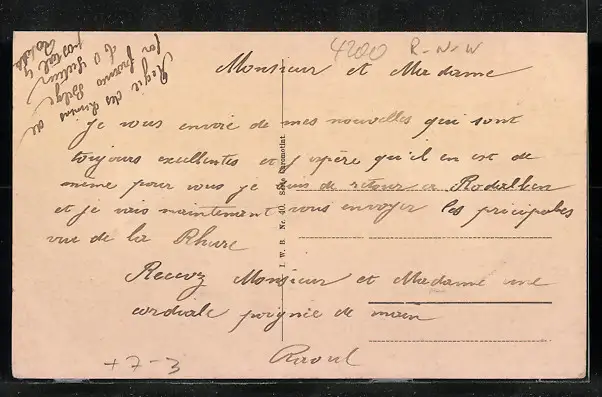 4200 R-N-W
Monsieur et Madame
Je vous envoie de mes nouvelles qui sont
toujours excellentes et j'espère qu'il en est de
même pour vous je suis de retour a
et je vais maintenant vous envoyer les pricipales
vue de la Rhure
Recevez Monsieur et Madame une
cordiale poignée de main
Raoul
+7-3
I. W. B. Nr. 40. Serie
Regie des
franco Belge
postal